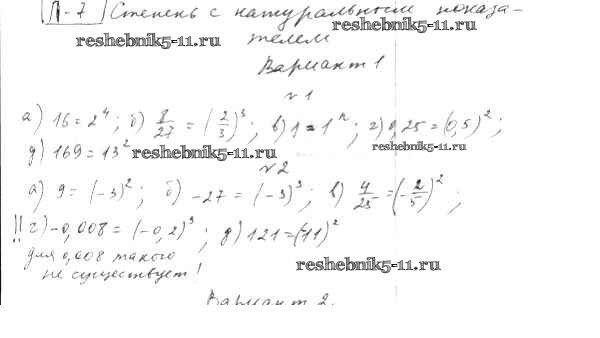 П-7 Степень с натуральным показа-
reshebnik5-11.ru reshebnik5-11.ru
телем
Вариант 1
№1
а) 16 = 2^4; б) 8/27 = (2/3)^3; в) 1 = 1^n; г) 0,25 = (0,5)^2;
д) 169 = 13^2 reshebnik5-11.ru reshebnik5-11.ru
№2
а) 9 = (-3)^2; б) -27 = (-3)^3; в) 4/25 = (-2/5)^2;
!! г) -0,008 = (-0,2)^3; д) 121 = (-11)^2
для 0,008 такого
не существует!
reshebnik5-11.ru
Вариант 2.